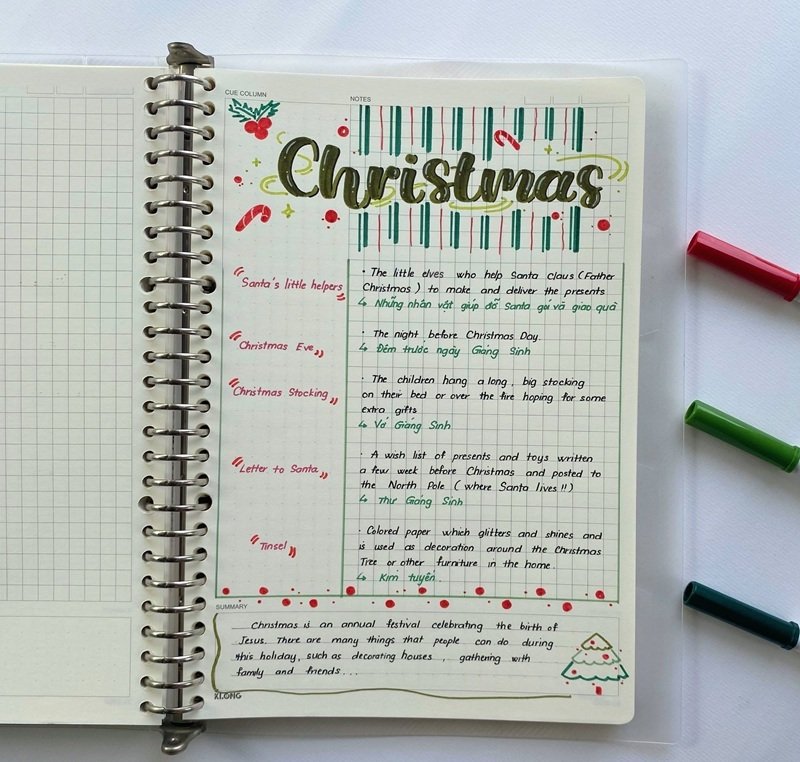 CUE COLUMN
NOTES
Christmas
Santa's little helpers
· The little elves who help Santa Claus (Father
Christmas) to make and deliver the presents
↳ Những nhân vật giúp đỡ Santa gói và giao quà
Christmas Eve
· The night before Christmas Day.
↳ Đêm trước ngày Giáng Sinh
Christmas Stocking
· The children hang a long, big stocking
on their bed or over the fire hoping for some
extra gifts
↳ Vớ Giáng Sinh
Letter to Santa
· A wish list of presents and toys written
a few week before Christmas and posted to
the North Pole (where Santa lives!!)
↳ Thư Giáng Sinh
Tinsel
· Colored paper which glitters and shines and
is used as decoration around the Christmas
Tree or other furniture in the home.
↳ Kim tuyến.
SUMMARY
Christmas is an annual festival celebrating the birth of
Jesus. There are many things that people can do during
this holiday, such as decorating houses, gathering with
family and friends...
KLONG